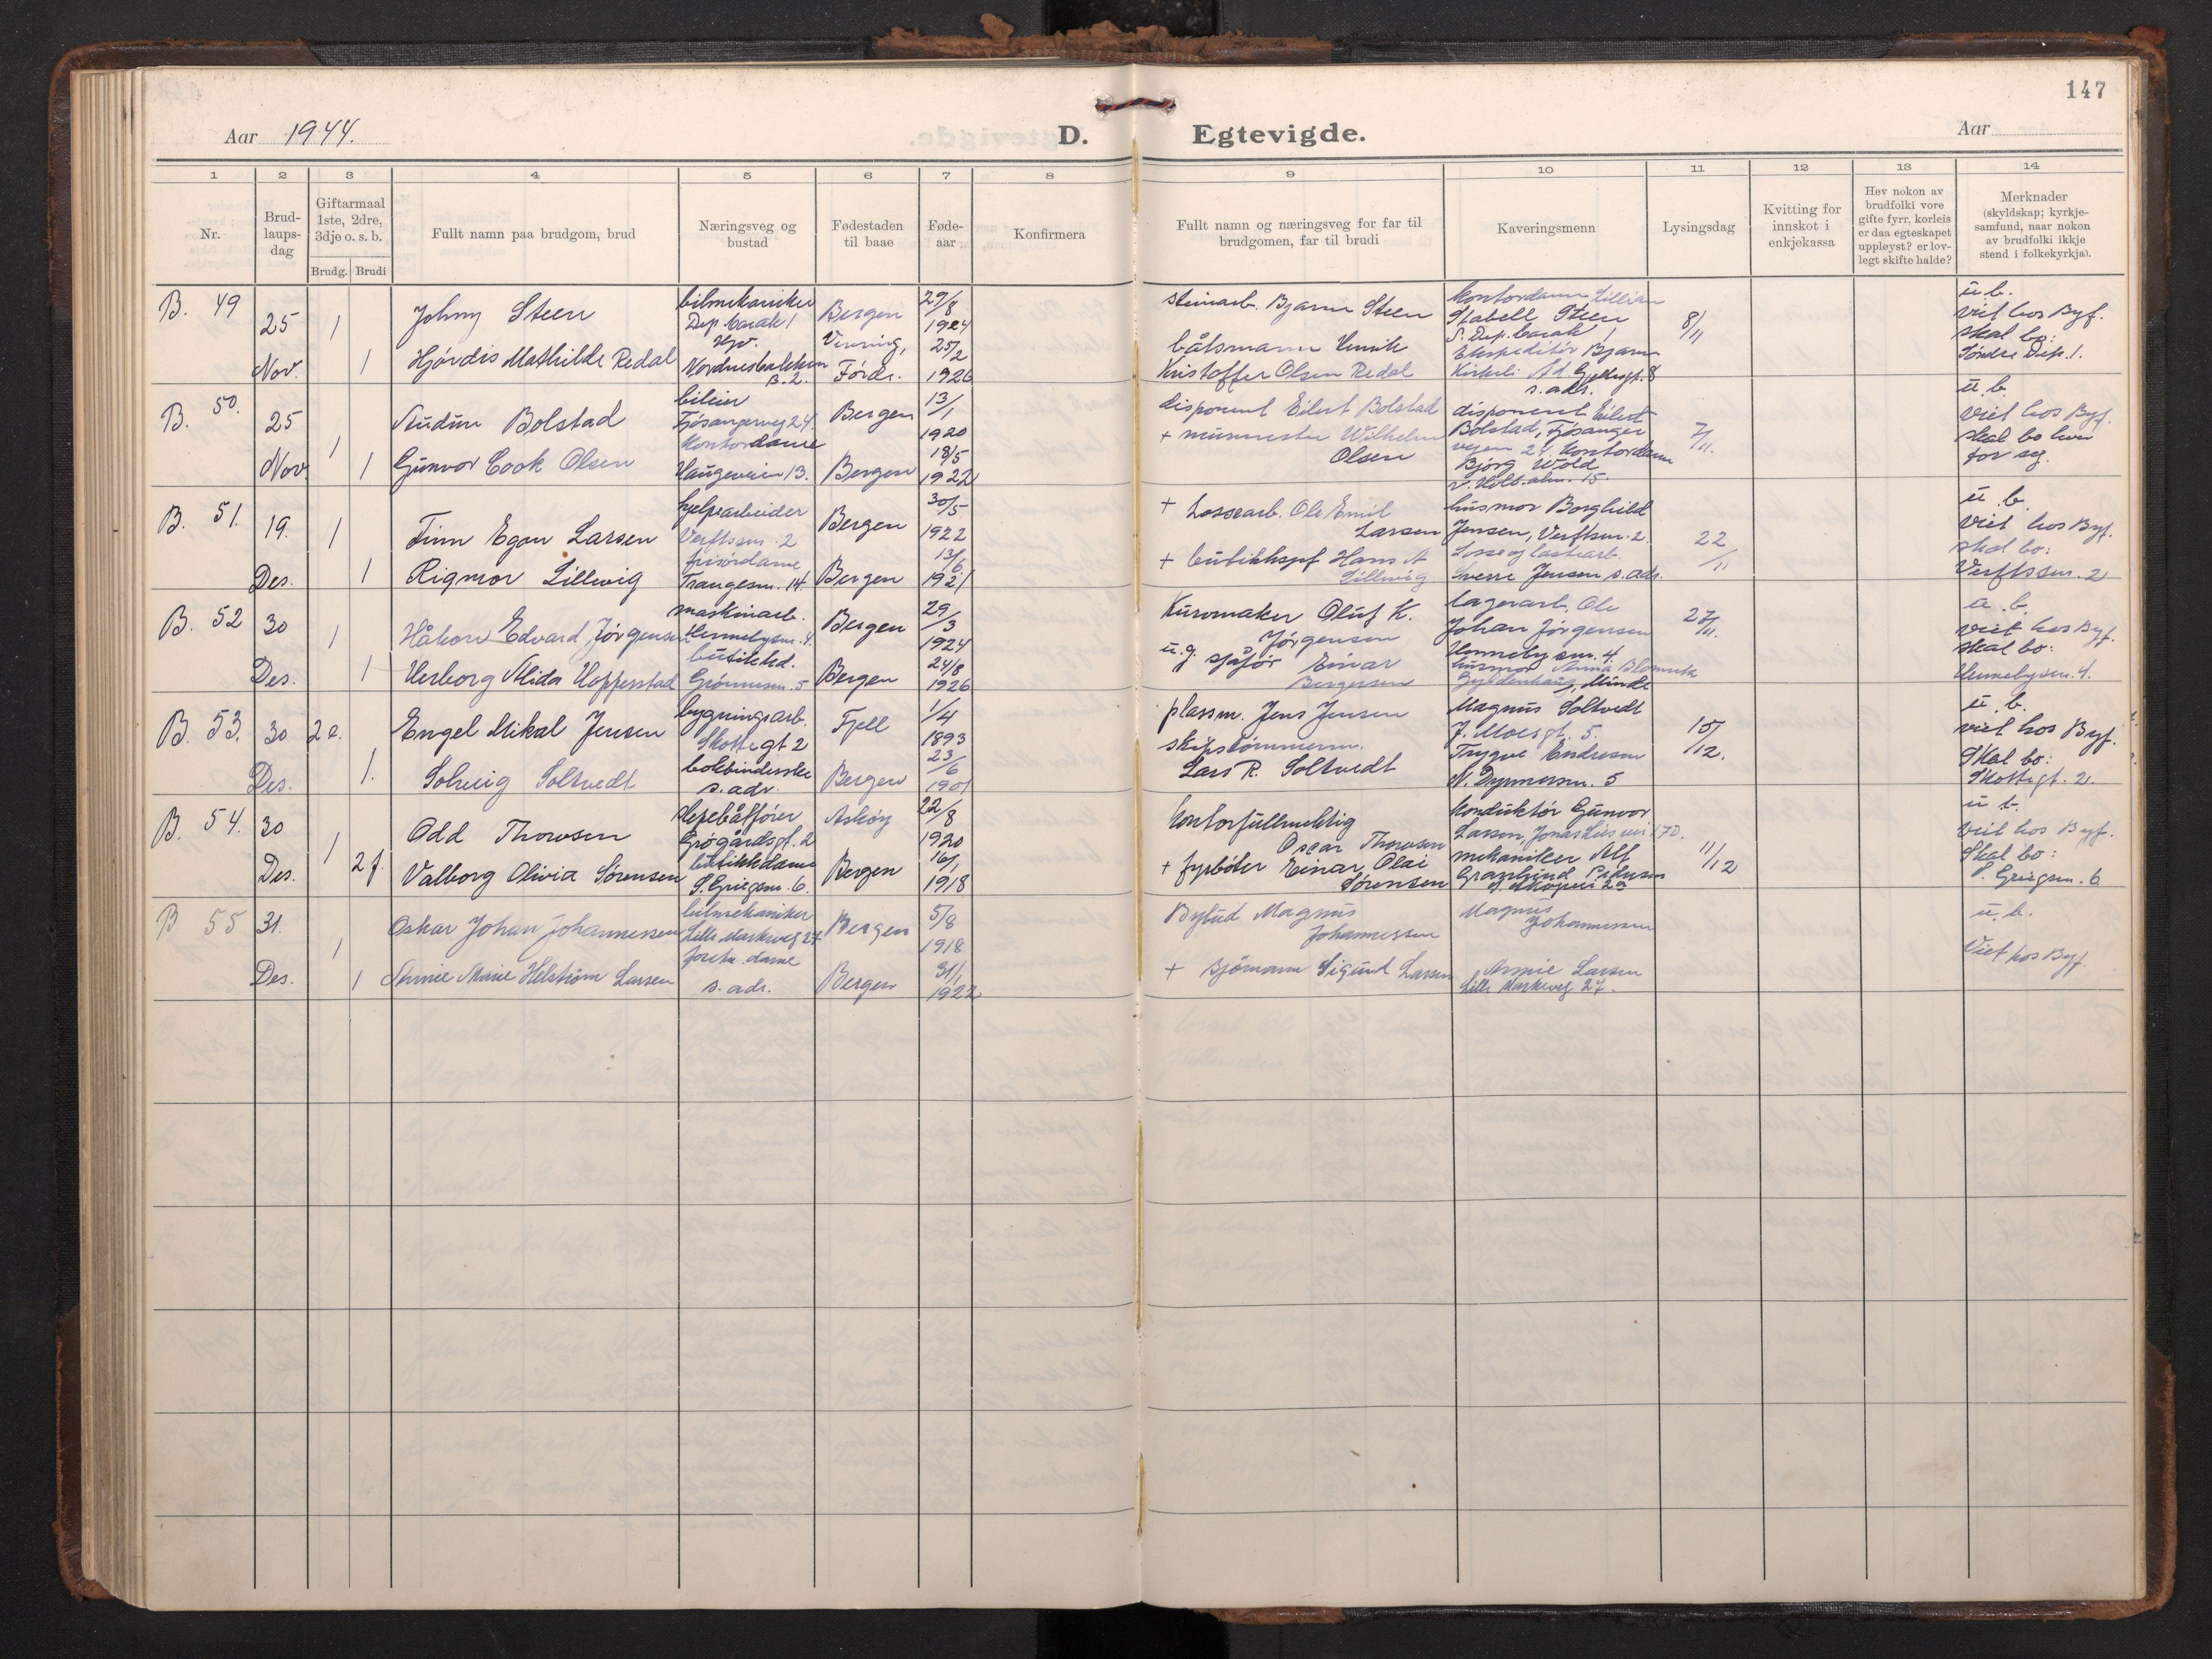 147
Aar 1944.
D.
Egtevigde.
Aar
1 2 3 4 5 6 7 8 9 10 11 12 13 14
Nr.
Brud-
laups-
dag
Giftarmaal
1ste, 2dre,
3dje o. s. b.
Brudg. Brudi
Fullt namn paa brudgom, brud
Næringsveg og
bustad
Fødestaden
til baae
Føde-
aar
Konfirmera
Fullt namn og næringsveg for far til
brudgomen, far til brudi
Kaveringsmenn
Lysingsdag
Kvitting for
innskot i
enkjekassa
Hev nokon av
brudfolki vore
gifte fyrr, korleis
er daa egteskapet
uppløyst? er lov-
legt skifte halde?
Merknader
(skyldskap; kyrkje-
samfund, naar nokon
av brudfolki ikkje
stend i folkekyrkja).
B. 49
25
Nov.
1
1
Johny Steen
Hjørdis Mathilde Redal
bilmekaniker
Dep. barak 1
Hpv.
Nordnesbakken
B. 2.
Bergen
Vevring,
Førde.
29/8
1924
25/2
1926
steinarb. Bjarne Steen
båtsmann Henrik
Kristoffer Olsen Redal
kontordame Lillian
Stabell Steen
S. Dep. barak 1
Ekspeditør Bjarne
Kirkeli Ad. Gjellesgt. 8
s. adr.
8/11
u. b.
viet hos Byf.
skal bo:
Søndre Dep. 1.
B. 50.
25
Nov.
1
1
Audun Bolstad
Gunvor Cook Olsen
bileier
Fjøsangerveg 24.
Kontordame
Haugeveien 13.
Bergen
Bergen
13/1
1920
18/5
1922
disponent Eilert Bolstad
+ murmester Wilhelm
Olsen
disponent Eilert
Bolstad, Fjøsanger
vegen 24, Kontordame
Bjørg Wold
v. Holb. alm. 15.
7/11.
u. b.
viet hos Byf.
skal bo hver
for seg.
B. 51.
19.
Des.
1
1
Finn Egon Larsen
Rigmor Lillevig
hjelpearbeider
Verftssm. 2
frisørdame
Trangesm. 14.
Bergen
Bergen
30/5
1922
13/6
1921
+ Lossearb. Ole Emil
Larsen
+ butikkspf Hans A
Lillevig
husmor Borghild
Jensen, Verftsm. 2.
Losse og lastearb.
Sverre Jensen s. adr.
22/11
u. b.
viet hos Byf.
skal bo:
Verftssm. 2
B. 52
30
Des.
1
1
Håkon Edvard Jørgensen
Herborg Alida Hopperstad
maskinarb.
Hennebysm. 4
butikkd.
Grønnesm. 5
Bergen
Bergen
29/3
1924
24/8
1926
Kurvmaker Oluf K.
Jørgensen
u.g. sjåfør Einar
Bergersen
lagerarb. Ole
Johan Jørgensen
Hennebysm. 4.
husmor Anna
Gyldenhaug, Minde
27/11.
u. b.
viet hos Byf.
skal bo:
Hennebysm. 4.
B. 53.
30
Des.
2 e.
1.
Engel Mikal Jensen
Solveig Soltvedt
bygningsarb.
Skottegt 2
bokbinderske
s. adr.
Fjell
Bergen
1/4
1893
23/6
1901
plassm. Jens Jensen
skipstømmerm.
Lars R. Soltvedt
Magnus Soltvedt
J. Moesgt. 5.
Trygve Endresen
N. Dynnersm. 5
15/12.
u. b.
viet hos Byf.
Skal bo:
Skottegt. 2.
B. 54.
30
Des.
1
2 f.
Odd Thowsen
Valborg Olivia Sørensen
slepebåtfører
Grøgårdsgt. 2
butikkdame
S. Griegsm. 6.
Askøy
Bergen
22/8
1920
16/1
1918
Kontorfullmektig
Oscar Thowsen
+ fyrbøter Einar Olai
Sørensen
konduktør Gunvor
Larsen, Jonas Lies vei 70.
mekaniker Alf
11/12
u. b.
viet hos Byf.
Skal bo:
S. Griegsm. 6
B 55
31.
Des.
1
1
Oskar Johan Johannessen
Annie Marie Helstrøm Larsen
bilmekaniker
Lille Markeveg 27
forretn. dame
s. adr.
Bergen
Bergen
5/8
1918
31/1
1922
Bybud Magnus
Johannessen
+ sjømann Sigurd Larsen
Magnus
Johannessen
Annie Larsen
Lille Markeveg 27.
u. b.
Viet hos Byf.